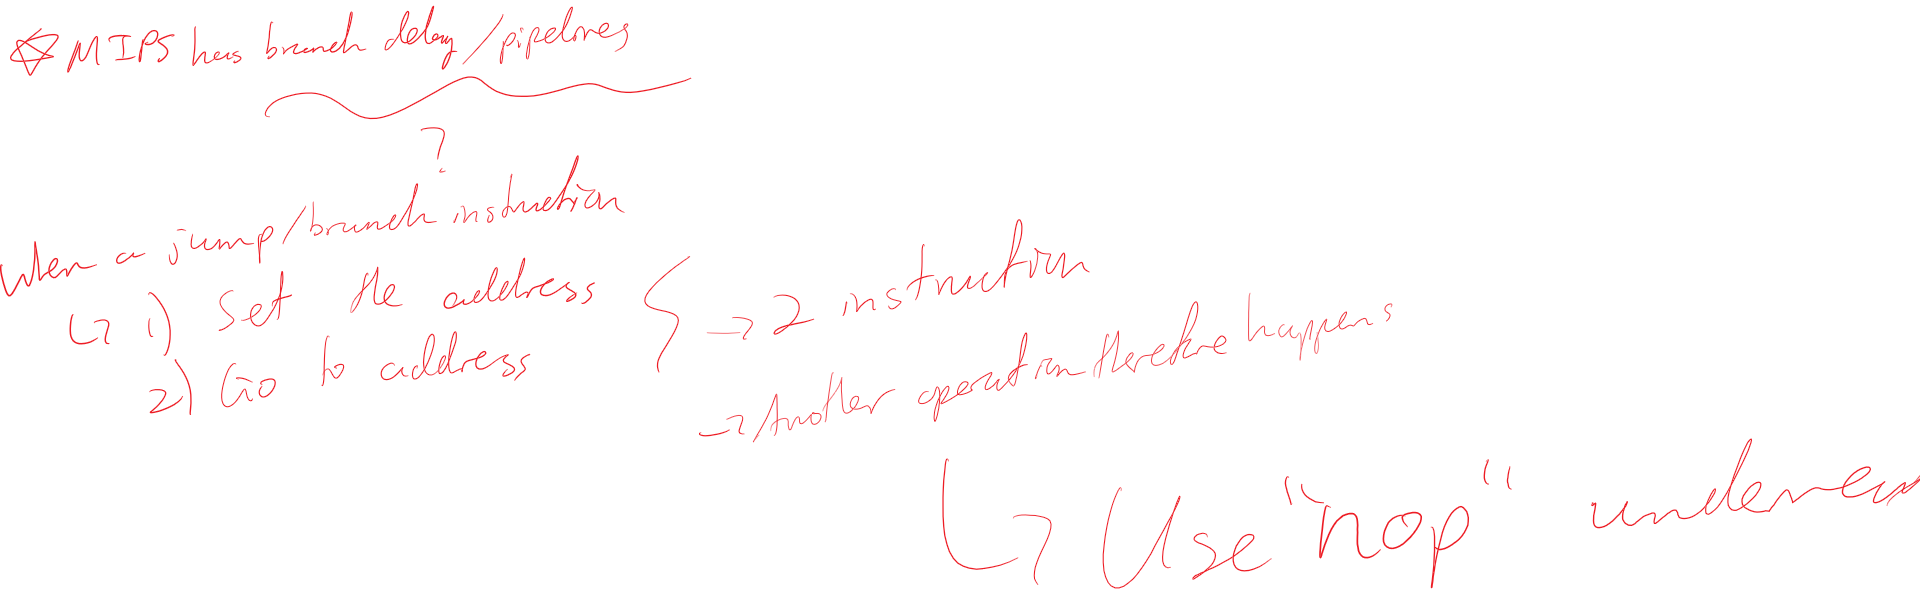 ☆ MIPS has branch delay/pipelines
?
When a jump/branch instruction
↳ 1) Set the address
2) Go to address
→ 2 instruction
→ Another operation therefore happens
↳ Use "nop"